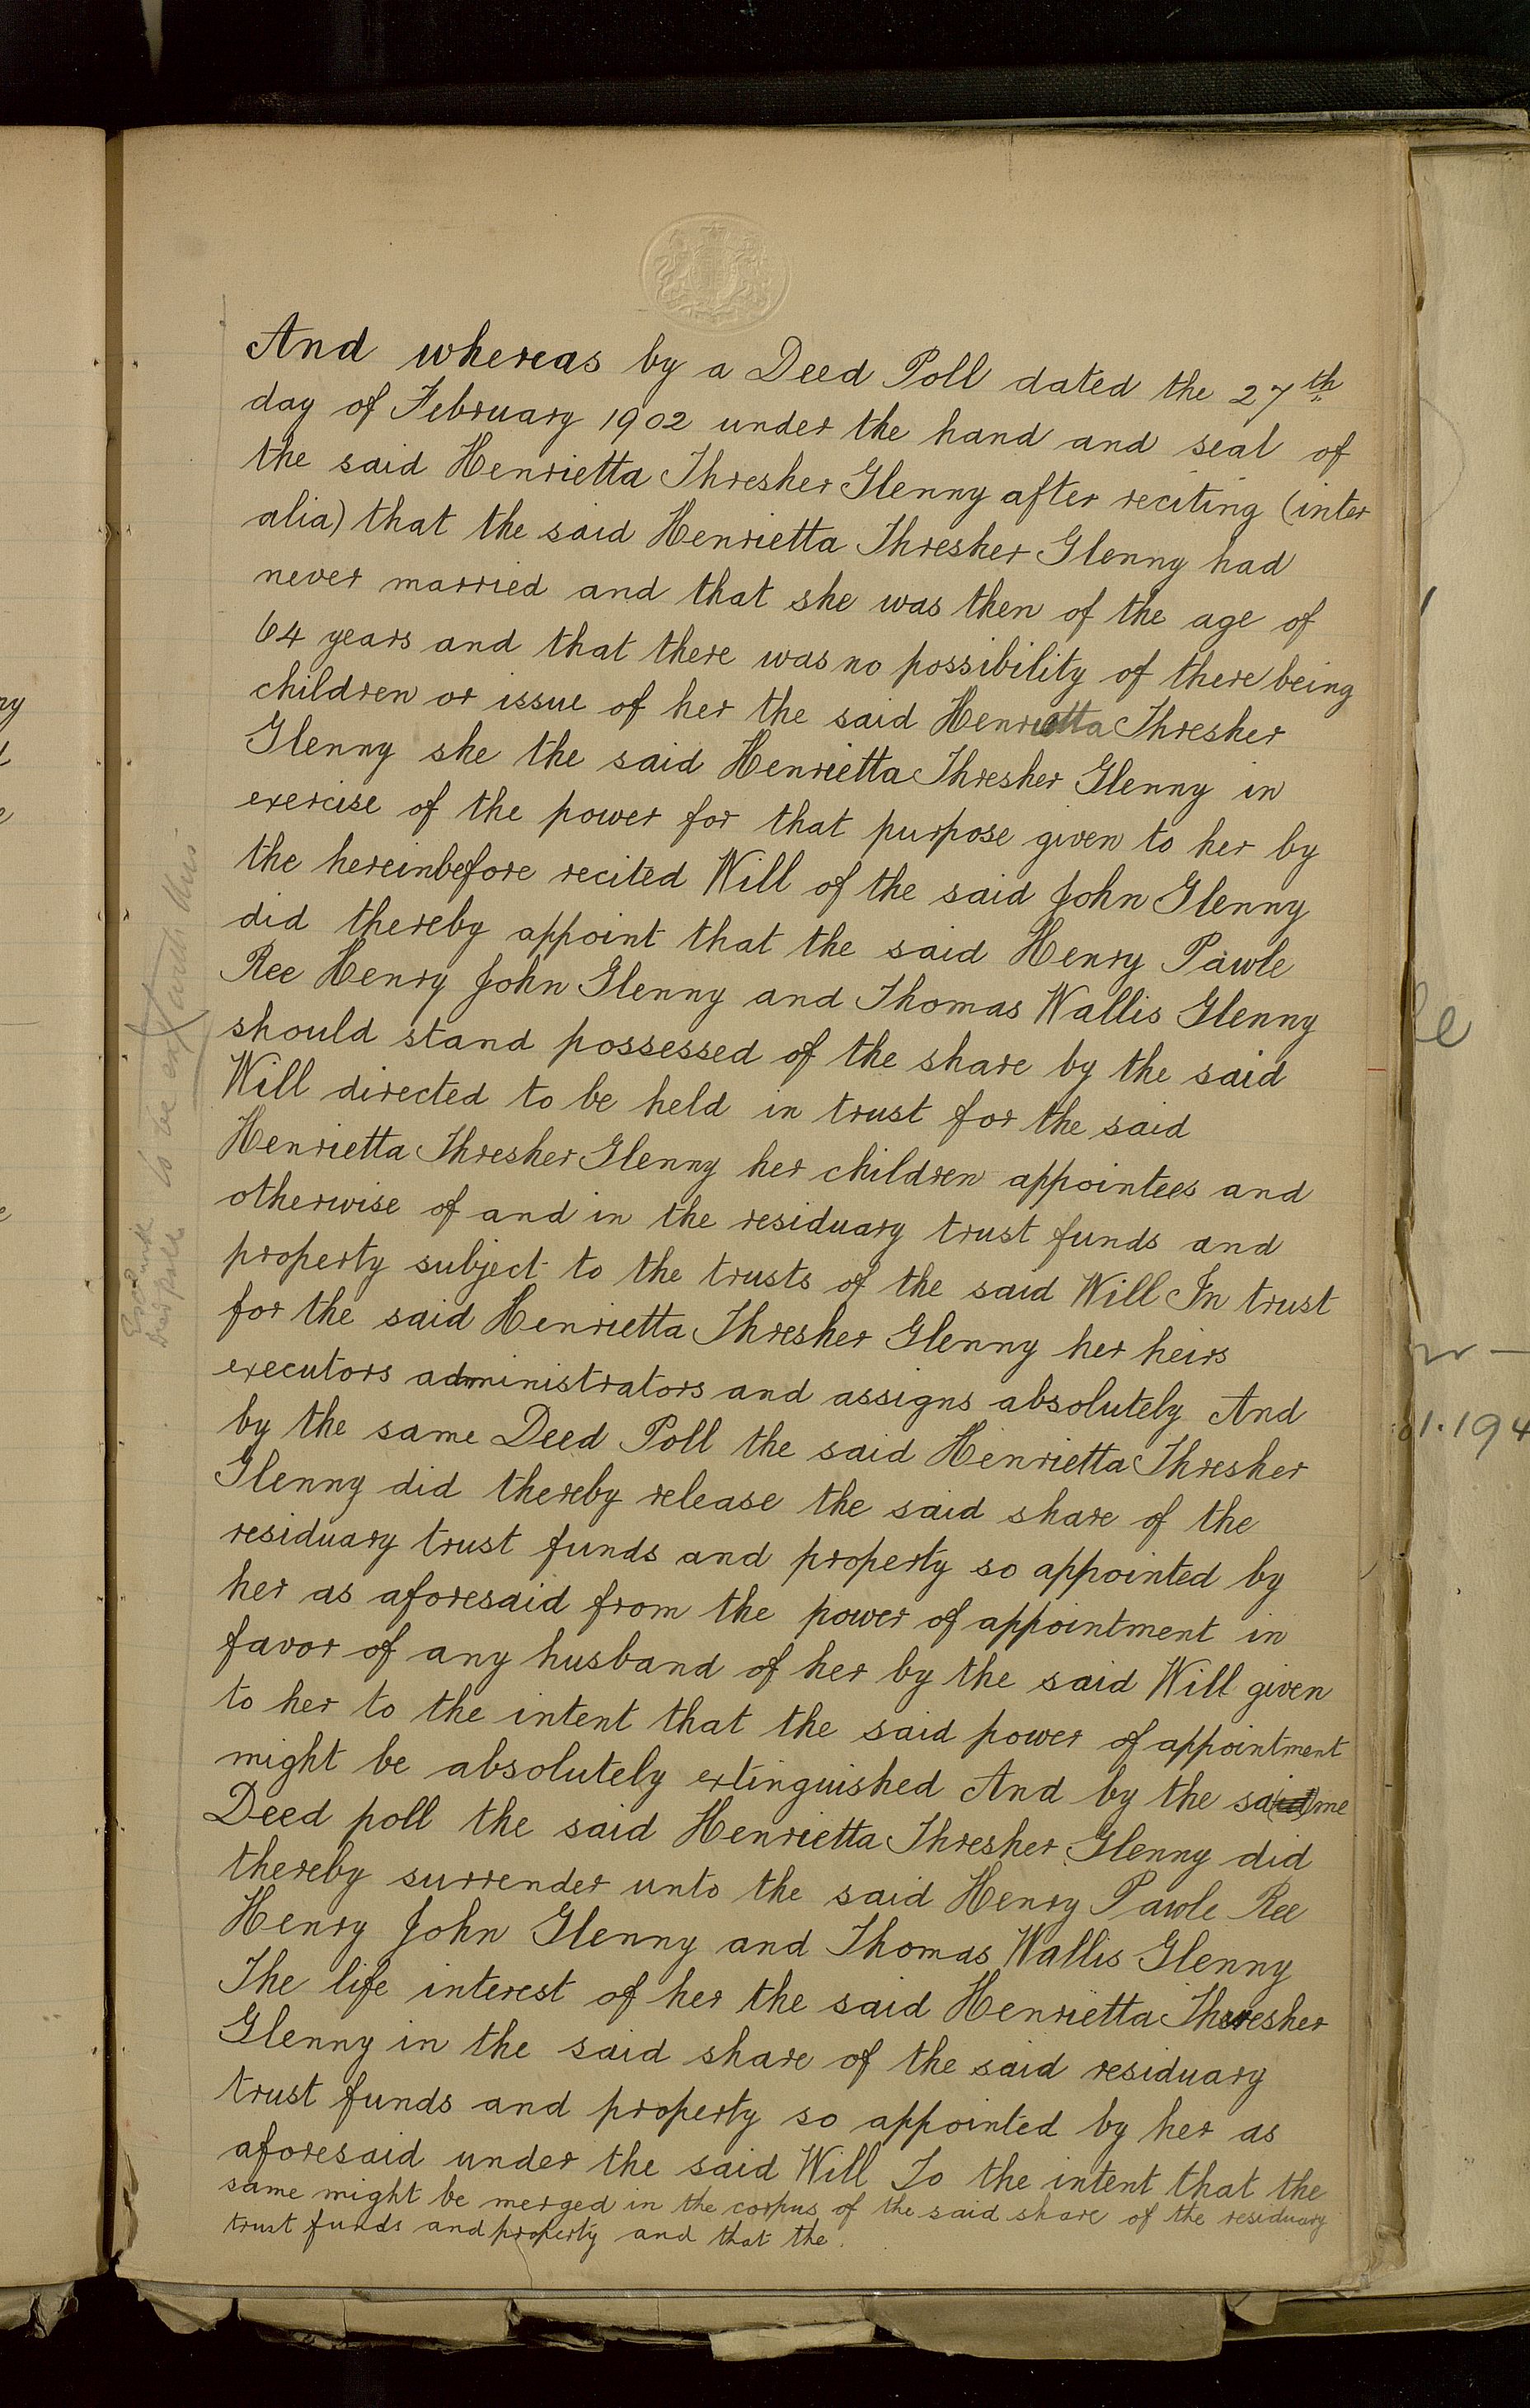 And whereas by a Deed Poll dated the 27th
day of February 1902 under the hand and seal of
the said Henrietta Thresher Glenny after reciting (inter
alia) that the said Henrietta Thresher Glenny had
never married and that she was then of the age of
64 years and that there was no possibility of there being
children or issue of her the said Henrietta Thresher
Glenny she the said Henrietta Thresher Glenny in
exercise of the power for that purpose given to her by
the hereinbefore recited Will of the said John Glenny
did thereby appoint that the said Henry Pawle
Ree Henry John Glenny and Thomas Wallis Glenny
should stand possessed of the share by the said
Will directed to be held in trust for the said
Henrietta Thresher Glenny her children appointees and
otherwise of and in the residuary trust funds and
property subject to the trusts of the said Will In trust
for the said Henrietta Thresher Glenny her heirs
executors administrators and assigns absolutely And
by the same Deed Poll the said Henrietta Thresher
Glenny did thereby release the said share of the
residuary trust funds and property so appointed by
her as aforesaid from the power of appointment in
favor of any husband of her by the said Will given
to her to the intent that the said power of appointment
might be absolutely extinguished And by the sa(id)me
Deed poll the said Henrietta Thresher Glenny did
thereby surrender unto the said Henry Pawle Ree
Henry John Glenny and Thomas Wallis Glenny
The life interest of her the said Henrietta Thresher
Glenny in the said share of the said residuary
trust funds and property so appointed by her as
aforesaid under the said Will To the intent that the
same might be merged in the corpus of the said share of the residuary
trust funds and property and that the
to be
1.194